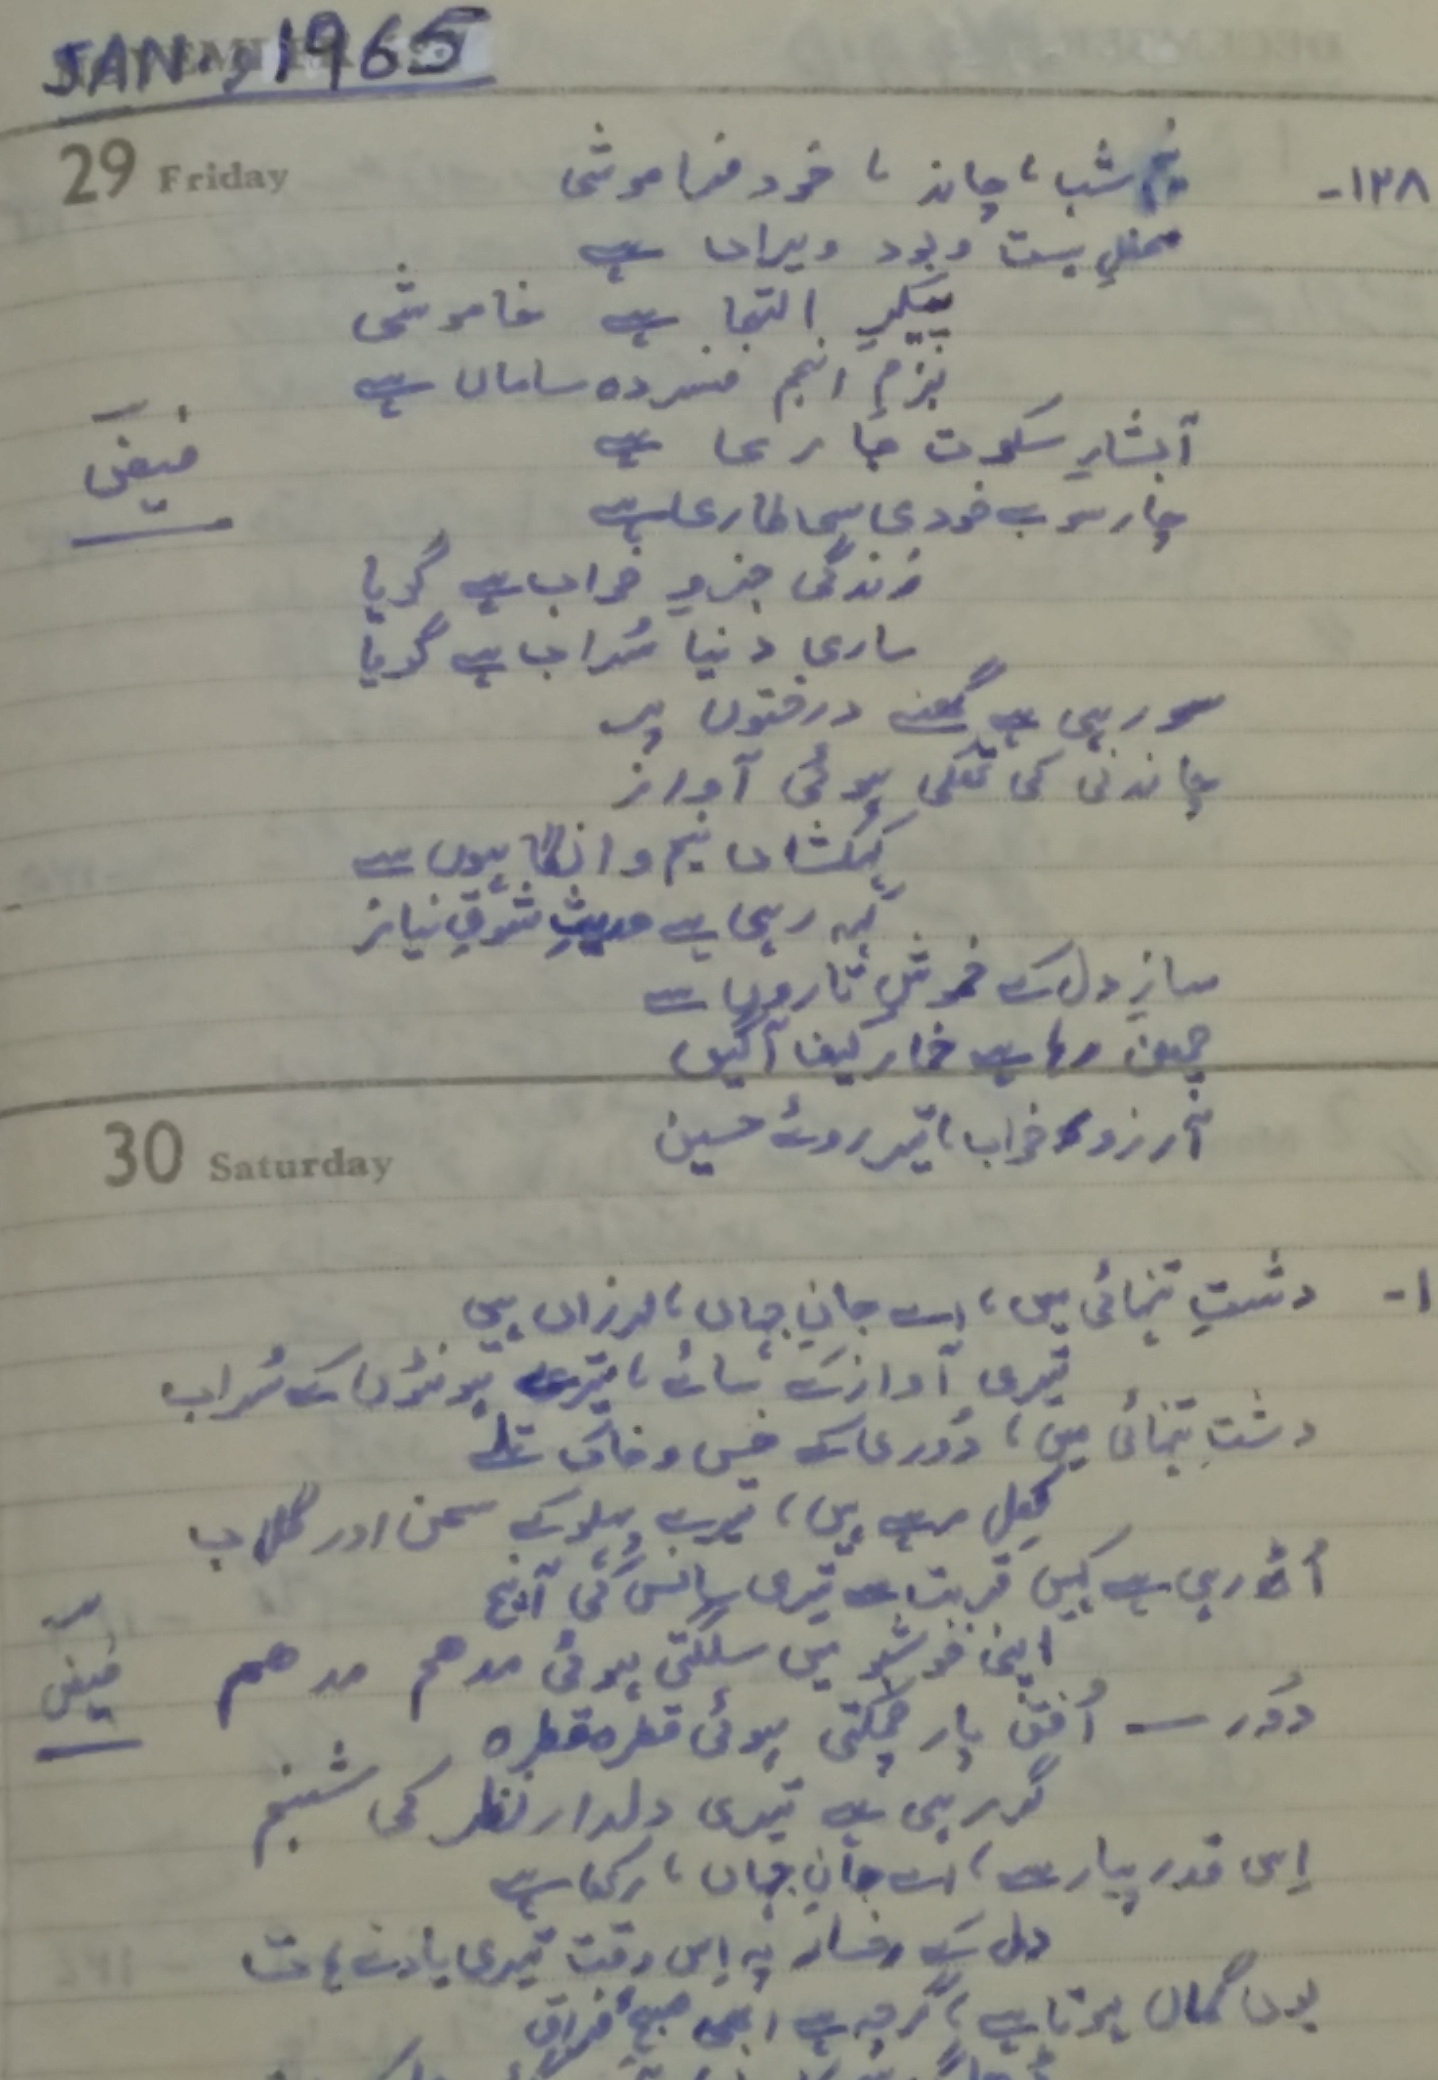 JAN, 1965
29 Friday
۱۳۸-
نیم شب، چاند، خود فراموشی
محفلِ ہست و بود ویراں ہے
پیکرِ التجا ہے خاموشی
بزمِ انجم فسردہ ساماں ہے
آبشارِ سکوت جاری ہے
فیض
چار سو بے خودی سی طاری ہے
زندگی جزوِ خواب ہے گویا
ساری دنیا سُراب ہے گویا
سو رہی ہے گھنے درختوں پر
چاندنی کی تھکی ہوئی آواز
کہکشاں نیم وا نگاہوں سے
کہہ رہی ہے حدیثِ شوقِ نیاز
سازِ دل کے خموش تاروں سے
چھن رہا ہے خمار کیف آگیں
آرزو، خواب، تیر روئے حسین
30 Saturday
۱-
دشتِ تنہائی میں، اے جانِ جہاں، لرزاں ہیں
تیری آواز کے سائے، تیرے ہونٹوں کے سُراب
دشتِ تنہائی میں، دُوری کے خس و خاک تلے
کھل رہے ہیں، تیرے پہلو کے سمن اور گلاب
اُٹھ رہی ہے کہیں قربت سے تیری سانس کی آنچ
اپنی خوشبو میں سلگتی ہوئی مدھم مدھم
فیض
دُور — اُفق پار چمکتی ہوئی قطرہ قطرہ
گر رہی ہے تیری دلدار نظر کی شبنم
اِس قدر پیار سے، اے جانِ جہاں، رکھا ہے
دل کے رخسار پہ اِس وقت تیری یاد نے ہات
یوں گماں ہوتا ہے، گرچہ ہے ابھی صبحِ فراق